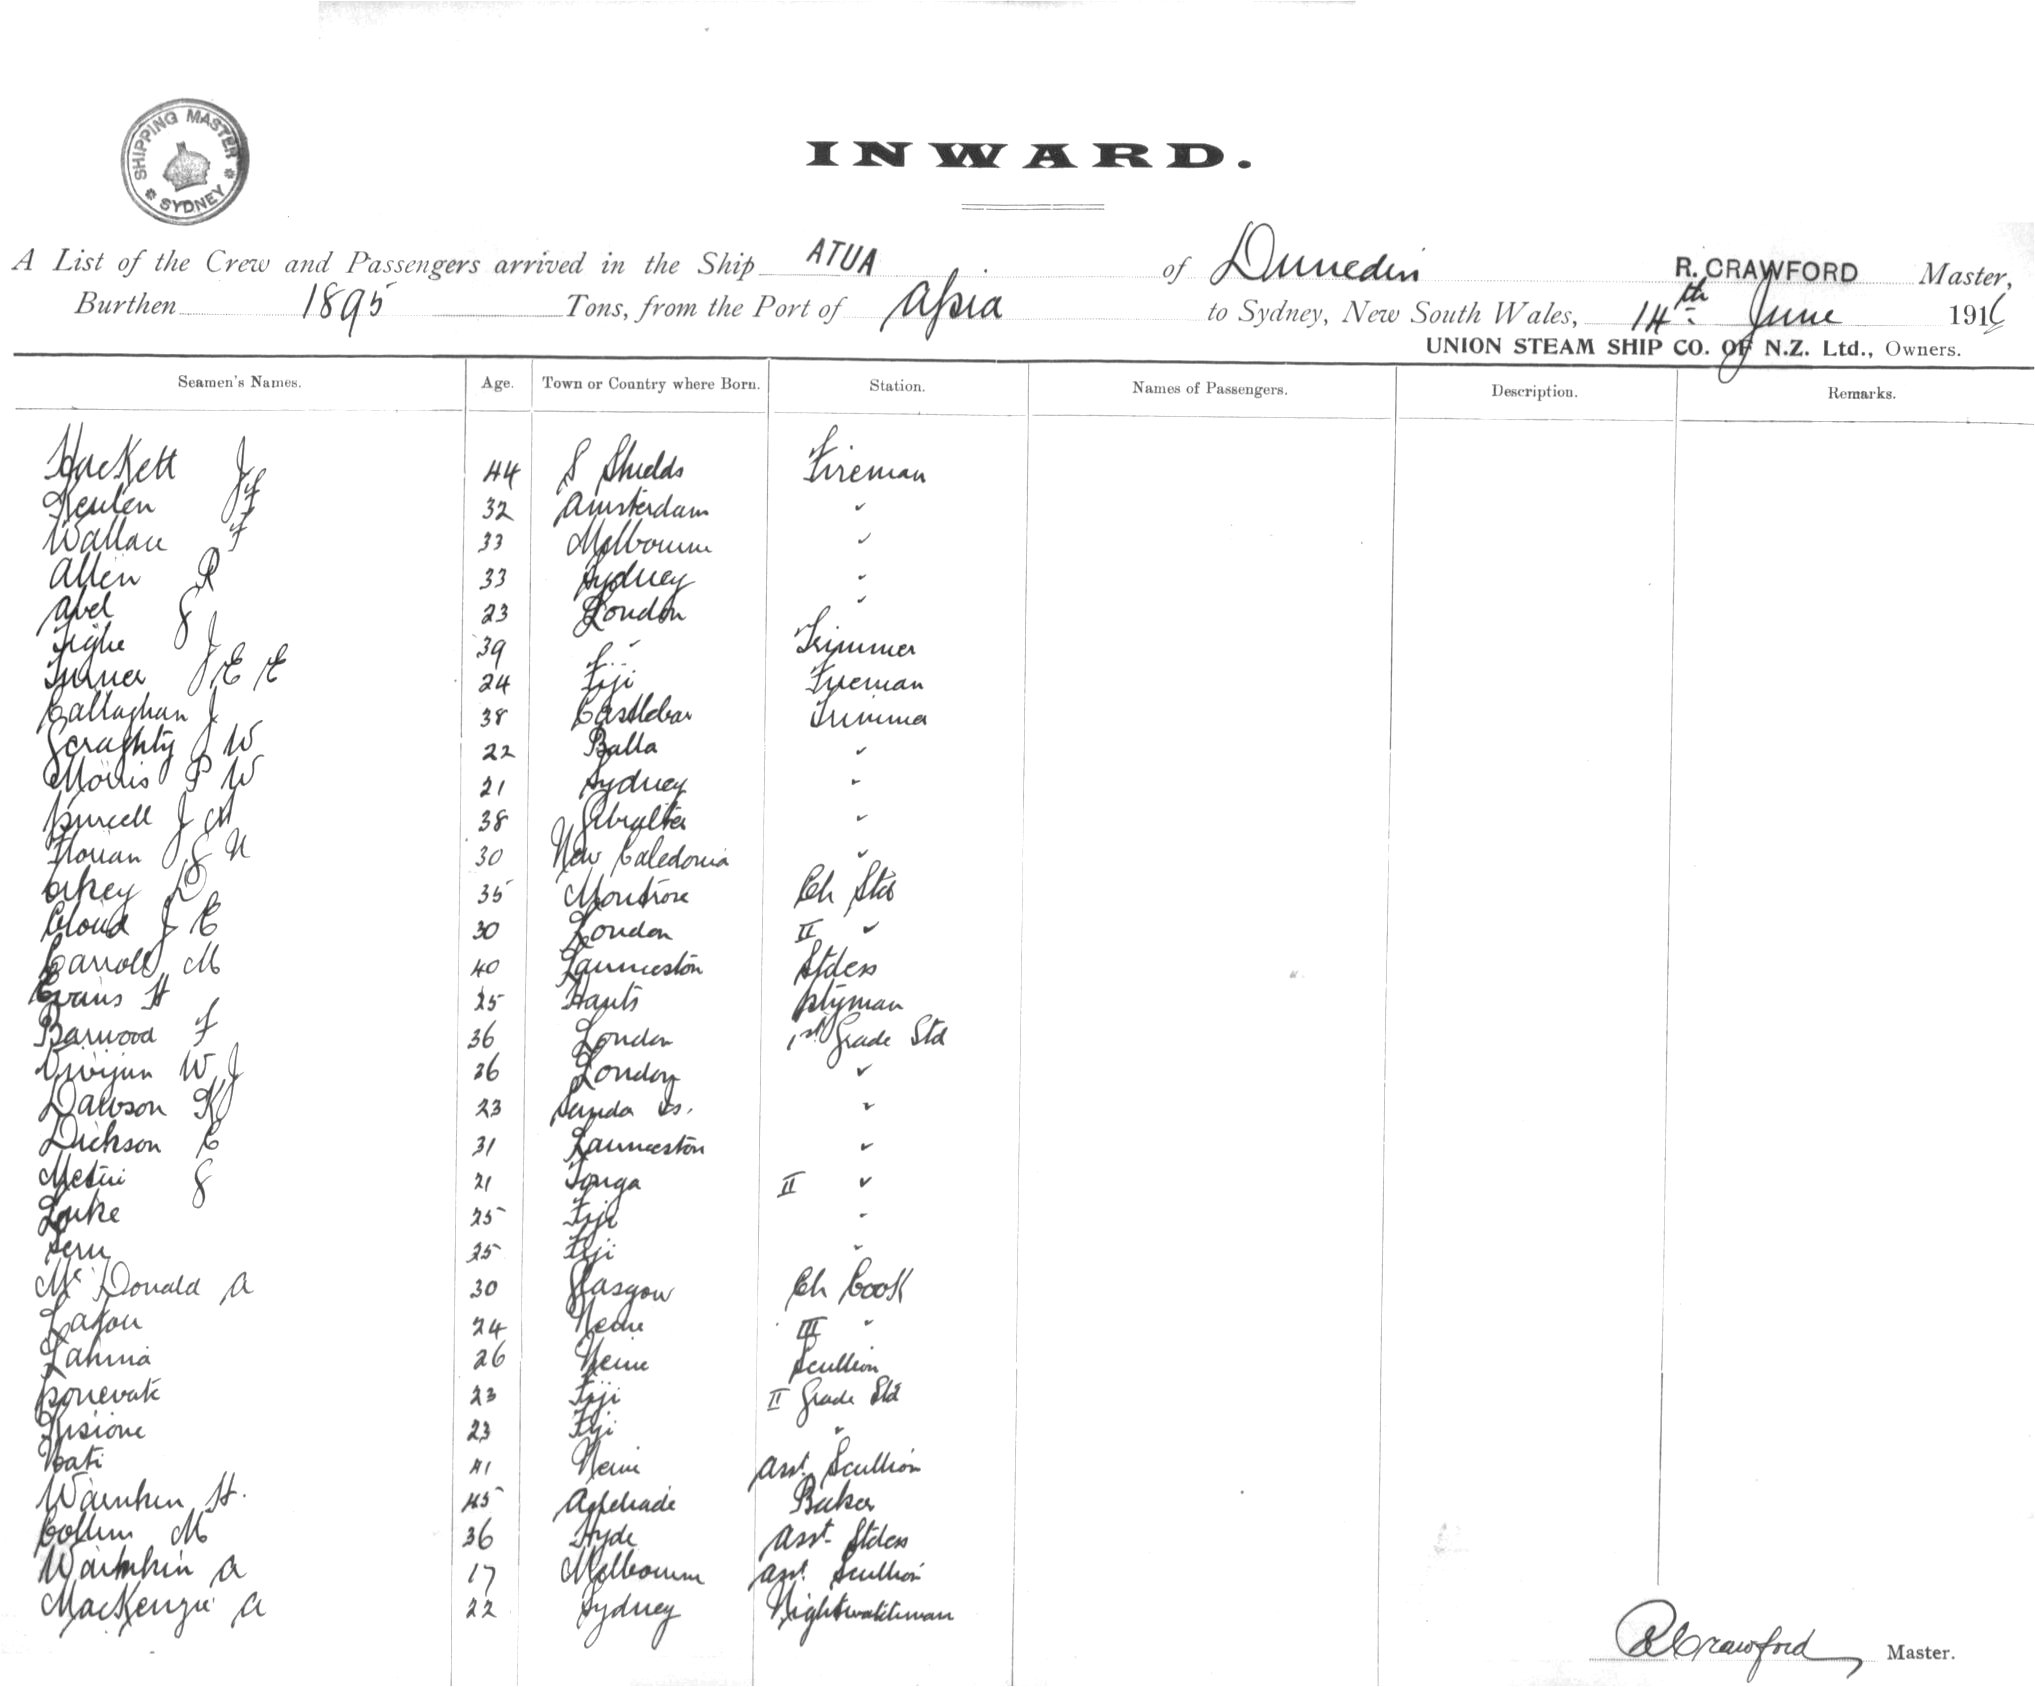 SHIPPING MASTER
SYDNEY
INWARD.
A List of the Crew and Passengers arrived in the Ship ATUA of Dunedin R. CRAWFORD Master,
Burthen 1895 Tons, from the Port of Apia to Sydney, New South Wales, 14th June 1916
UNION STEAM SHIP CO. OF N.Z. Ltd., Owners.
Seamen's Names. Age. Town or Country where Born. Station. Names of Passengers. Description. Remarks.
Hackett J 44 S Shields Fireman
Keulen J F 32 Amsterdam "
Wallace F 33 Melbourne "
Allen R 33 Sydney "
Abel G 23 London "
Tighe J 39 " Trimmer
Turner J E E 24 Fiji Fireman
Callaghan J 38 Castlebar Trimmer
Geraghty J W 22 Balla "
Morris P W 21 Sydney "
Purcell J M 38 Gibralter "
Florian G N 30 New Caledonia "
Akey D 35 Montrose Ch Std
Cloud J E 30 London II "
Carroll M 40 Launceston Stdess
Evans H 25 Hants Ptyman
Barwood F 36 London 1st Grade Std
W J 26 London "
Dawson K 23 Is. "
Dickson E 31 Launceston "
G 21 Tonga II "
Luke 25 Fiji "
Seru 25 Fiji "
McDonald A 30 Glasgow Ch Cook
24 III "
26 Scullion
Ponevate 23 Fiji II Grade Std
23 Fiji "
41 Asst. Scullion
H. 45 Adelaide Baker
Collins M 36 Hyde Asst. Stdess
A 17 Melbourne Asst. Scullion
MacKenzie A 22 Sydney Nightwatchman
R Crawford Master.